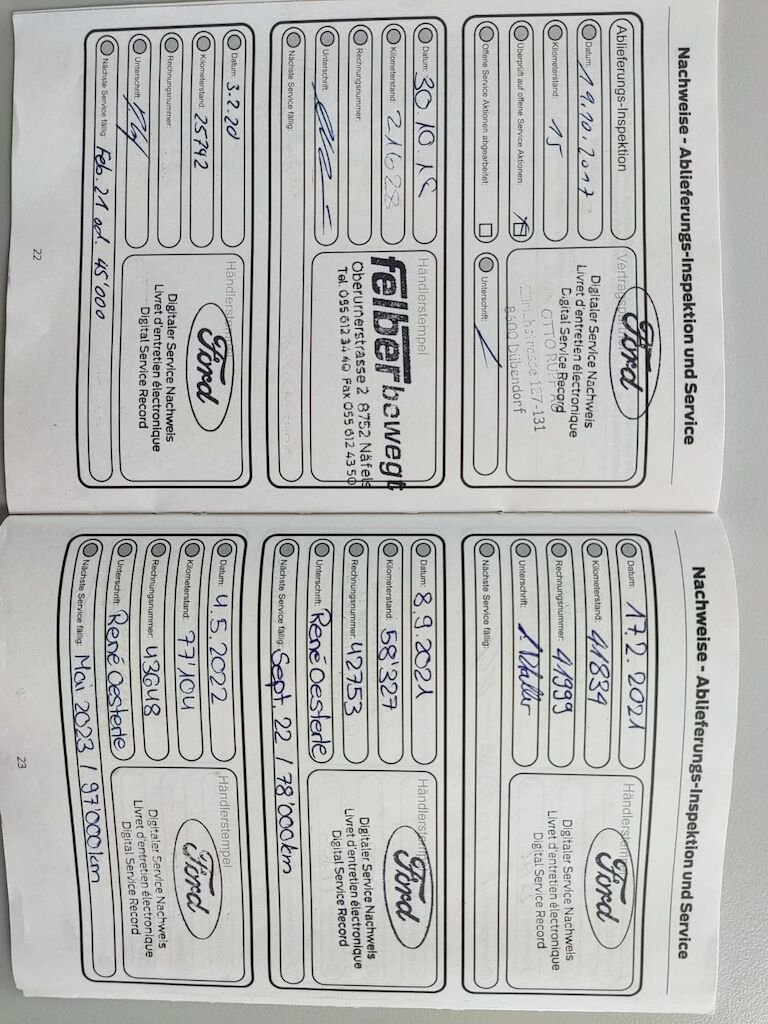 Nachweise - Ablieferungs-Inspektion und Service
Ablieferungs-Inspektion
Datum: 19.10.2017
Kilometerstand: 15
Überprüft auf offene Service Aktionen:
Offene Service Aktionen abgearbeitet:
Ford
Digitaler Service Nachweis
Livret d'entretien électronique
Digital Service Record
127-131
8600 Dübendorf
Unterschrift:
Datum: 30.10.18
Kilometerstand: 21628
Rechnungsnummer:
Unterschrift:
Nächste Service fällig:
Händlerstempel
felber bewegt
Oberurnerstrasse 2 8752 Näfels
Tel. 055 612 34 40 Fax 055 612 43 50
Datum: 3.2.20
Kilometerstand: 25792
Rechnungsnummer:
Unterschrift:
Nächste Service fällig: Feb. 21 od. 45'000
Ford
Digitaler Service Nachweis
Livret d'entretien électronique
Digital Service Record
22
Nachweise - Ablieferungs-Inspektion und Service
Datum: 17.2.2021
Kilometerstand: 41834
Rechnungsnummer: 41999
Unterschrift:
Nächste Service fällig:
Ford
Digitaler Service Nachweis
Livret d'entretien électronique
Digital Service Record
Datum: 8.9.2021
Kilometerstand: 58'327
Rechnungsnummer: 42753
Unterschrift: René Oesterle
Nächste Service fällig: Sept. 22 / 78'000km
Ford
Digitaler Service Nachweis
Livret d'entretien électronique
Digital Service Record
Datum: 4.5.2022
Kilometerstand: 77'104
Rechnungsnummer: 43648
Unterschrift: René Oesterle
Nächste Service fällig: Mai 2023 / 97'000km
Händlerstempel
Ford
Digitaler Service Nachweis
Livret d'entretien électronique
Digital Service Record
23